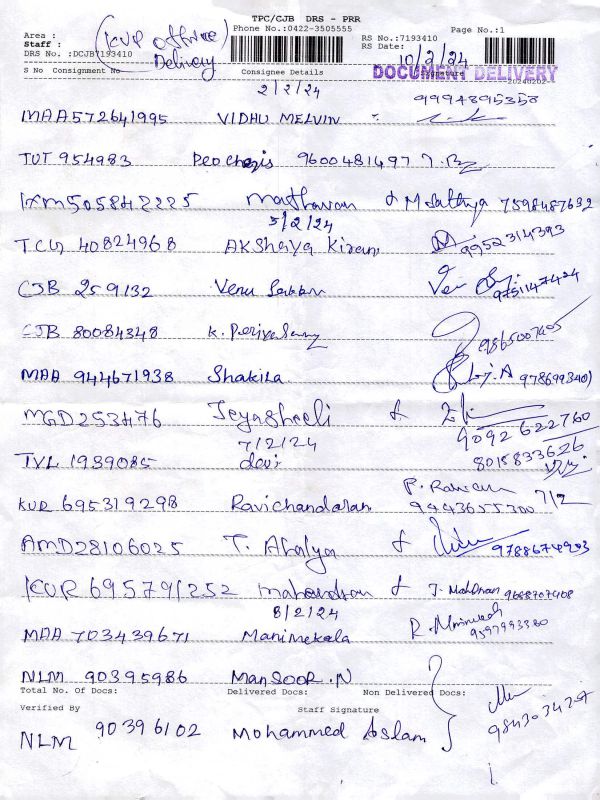 TPC/CJB DRS - PRR
Area : (KUR offline Phone No.:0422-3505555 Page No.:1
Staff : Delivery) RS No.:7193410
DRS No. :DCJB7193410 RS Date: 10/2/24
S No Consignment No Consignee Details Signature
DOCUMENT DELIVERY
20240202
2/2/24
9994895358
MAA572641995 VIDHU MELVIN
TUT 954983 9600481497
505842225 Madhavan M. Sathya 7598487632
5/2/24
TCG 40824968 Akshaya Kiran 9952314393
CJB 259132 Venu 9751147424
CJB 80084348 K. Periyasamy 9865007405
MAA 944671938 Shakila
MGD253476 Jeyasheeli 9092622760
7/2/24
TVL 1939085 devi 8015833626
KUR 695319298 Ravichandaran 9443655300 7/2
AMD28106025 T. Ahalya 9788674923
KUR 695791252 Mahendran
8/2/24
MAA 703439671 Manimekala 9597993380
NLM 90395986 MANSOOR .N
Total No. Of Docs: Delivered Docs: Non Delivered Docs:
Verified By Staff Signature
NLM 90396102 Mohammed Aslam